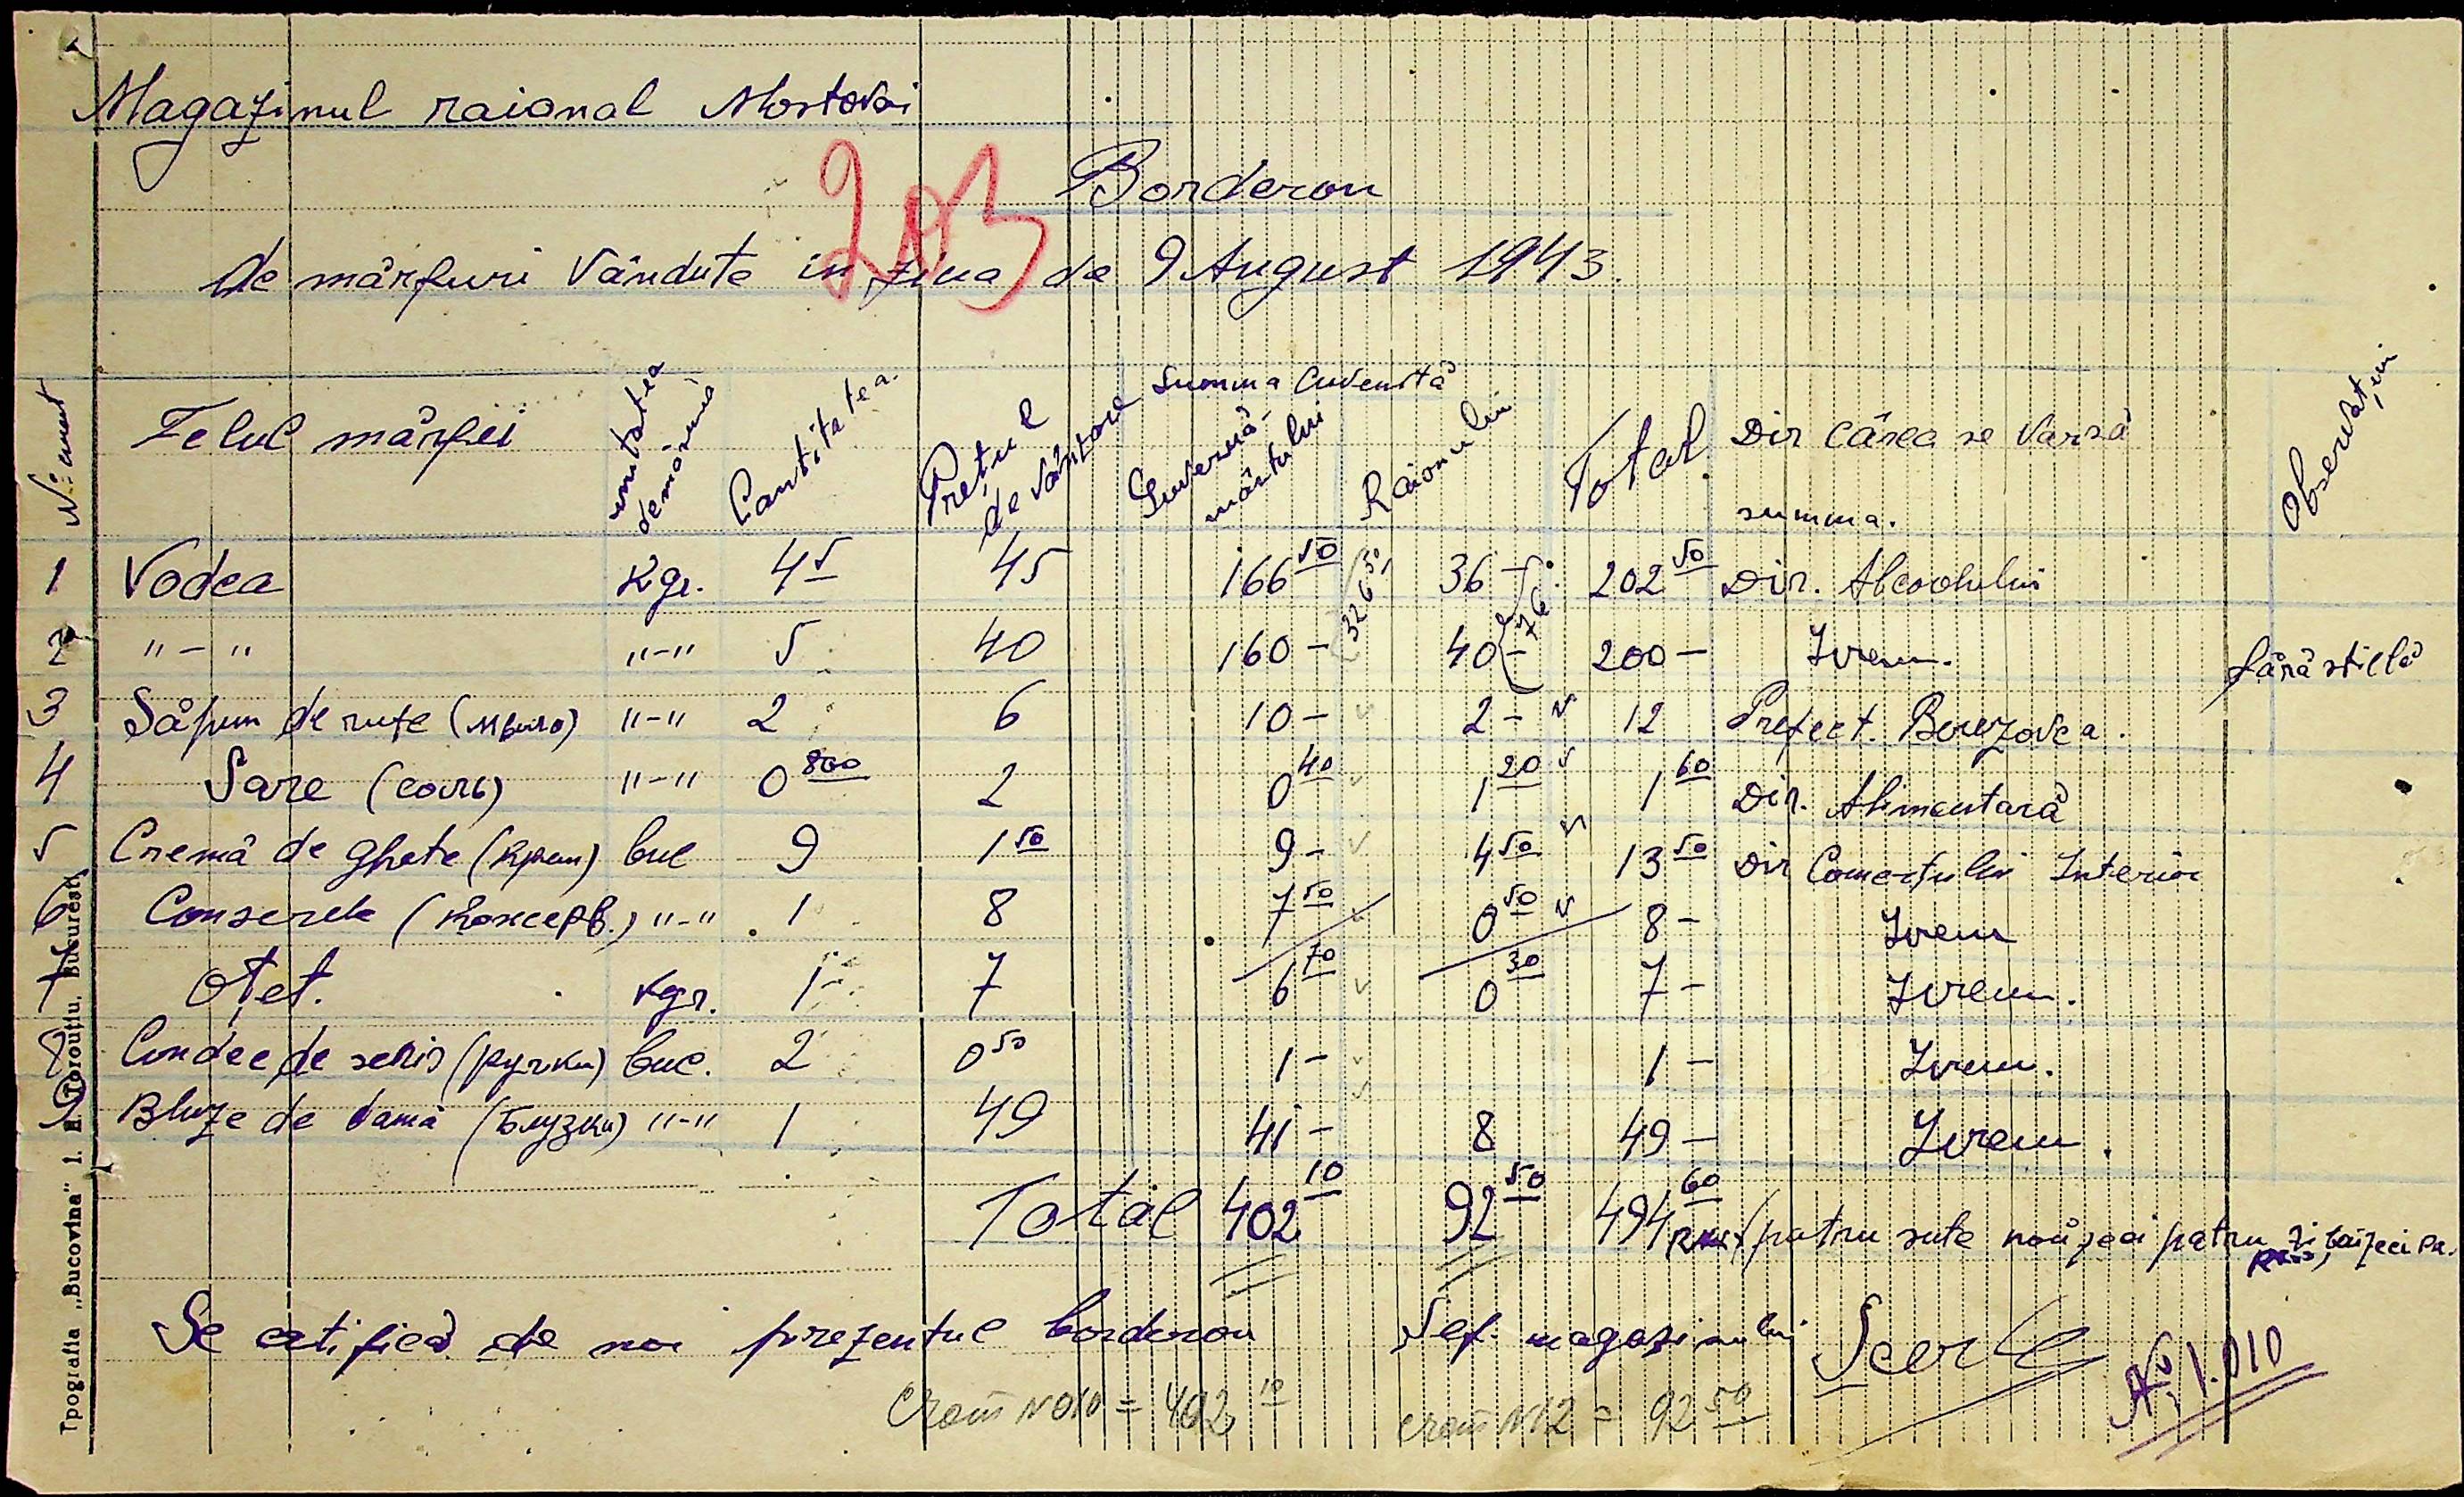 Magazinul raional Mostovoi
203
Borderou
de mărfuri vândute in ziua de 9 August 1943.
№ curent Felul mărfei unitatea de măsură Cantitatea Prețul de vânzare Summa cuvenită Guvernă-mântului Raionului Total Dir cărea se varsă summa. Observațiuni
1 Vodca Kgr. 4 5 45 166 50 36 - 202 50 Dir. Alcoolului
326 50 76
2 "-" "-" 5 40 160 - 40 - 200 - Idem. fără sticlă
3 Săpun de rufe (мыло) "-" 2 6 10 - 2 - 12 Prefect. Berezovca.
4 Sare (соль) "-" 0 800 2 0 40 1 20 1 60 Dir. Alimentară
5 Cremă de ghete (крем) buc 9 1 50 9 - 4 50 13 50 Dir Comerțului Interior
6 Conserve (консерв.) "-" 1 8 7 50 0 50 8 - Idem
7 Oțet. Kgr. 1 - 7 6 70 0 30 7 - Idem.
8 Condee de scris (ручки) buc. 2 0 50 1 - 1 - Idem.
9 Bluze de damă (Блузки) "-" 1 49 41 - 8 49 - Idem.
Total 402 10 92 50 494 60 RKKS (patru sute nouăzeci patru
Se certifică de noi prezentul borderou Șef. magazinului
№ 1.010
Счет N 010 = 402 10 счет N 12 = 92 50
Tipografia „Bucovina" I. E. Torouțiu, București